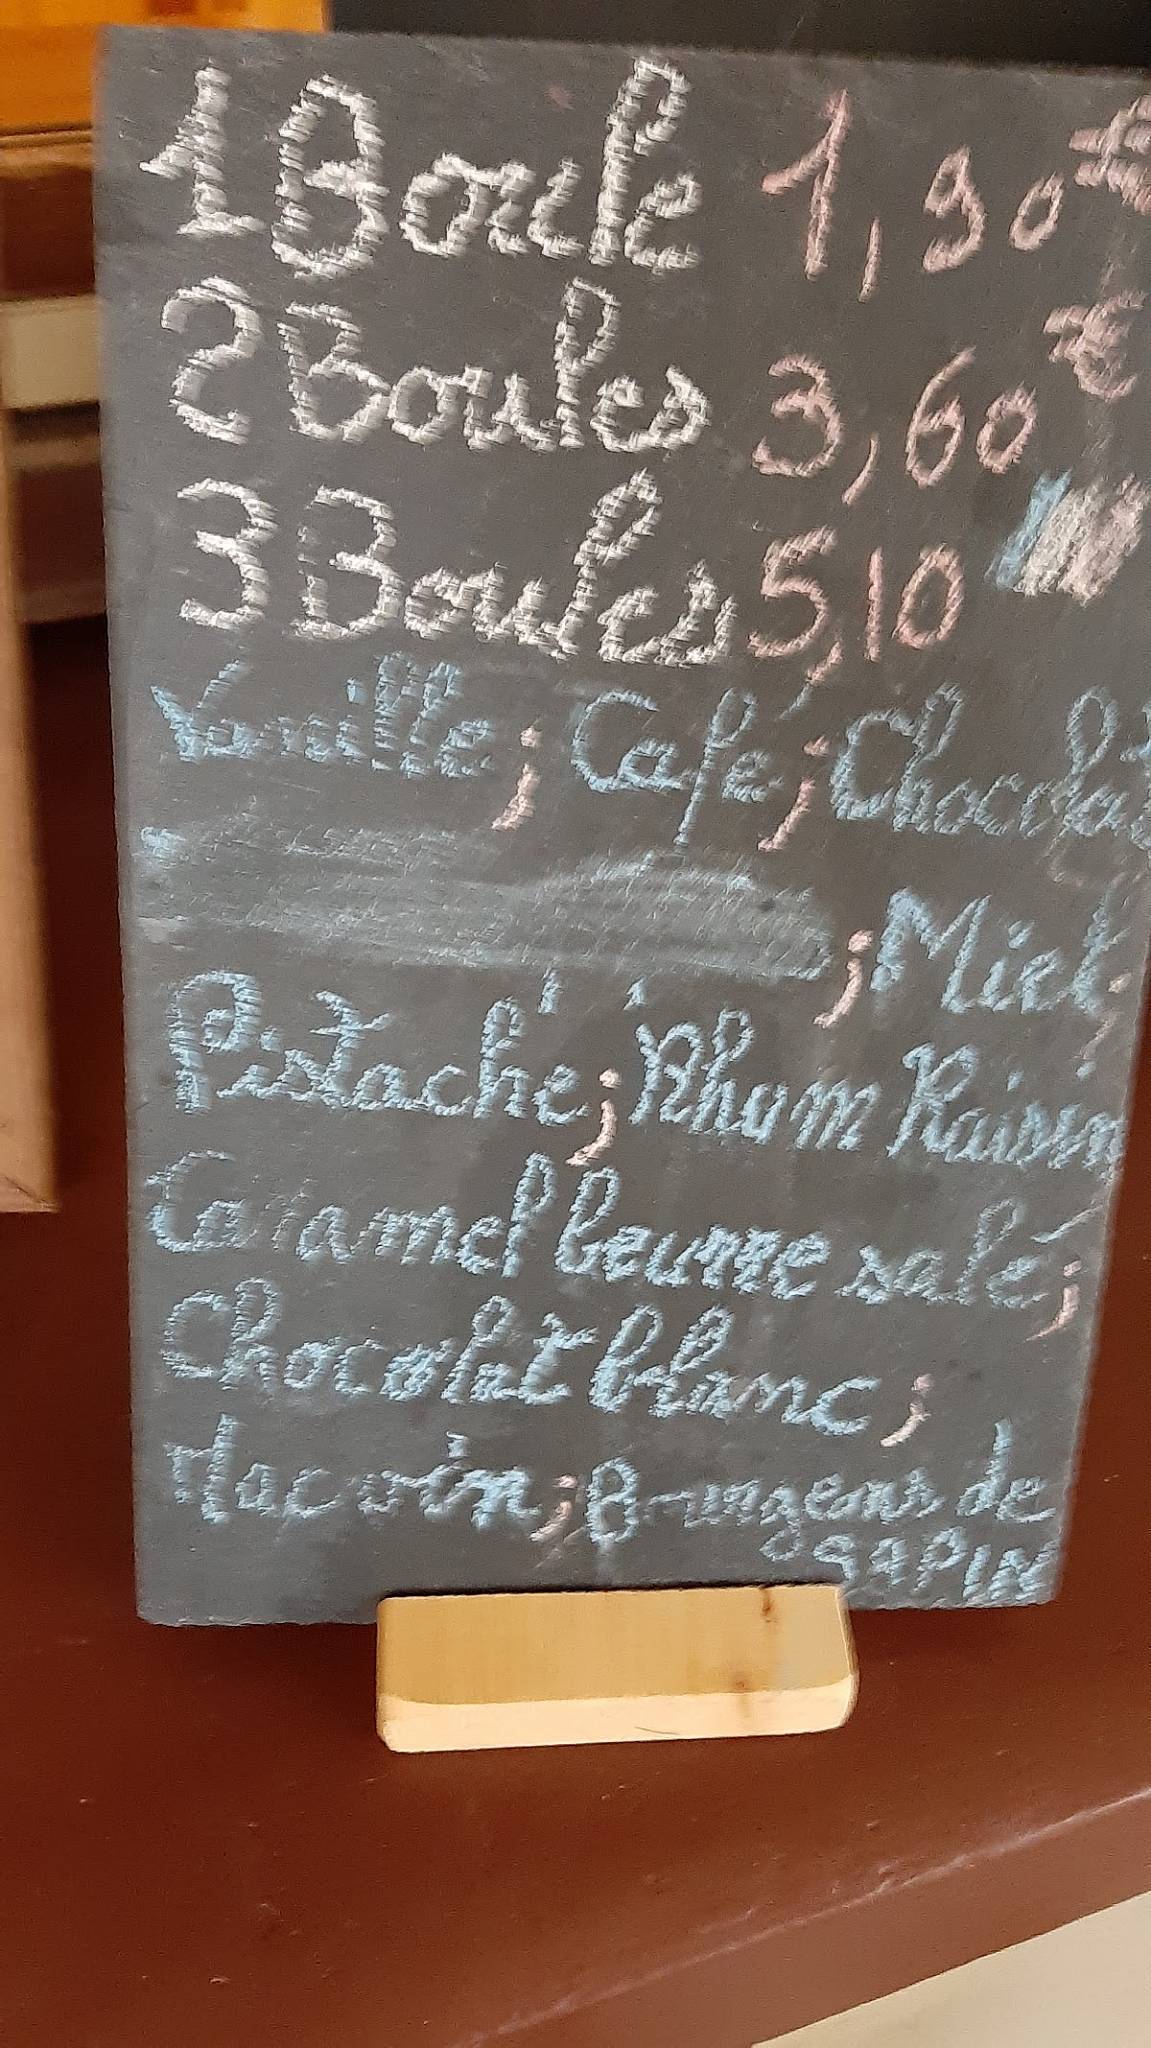 1 Boule 1,90 €
2 Boules 3,60 €
3 Boules 5,10
Vanille ; Café ; Chocolat
; Miel ;
Pistache ; Rhum Raisin
Caramel beurre salé ;
Chocolat blanc ;
Macvin ; Bourgeons de
SAPIN